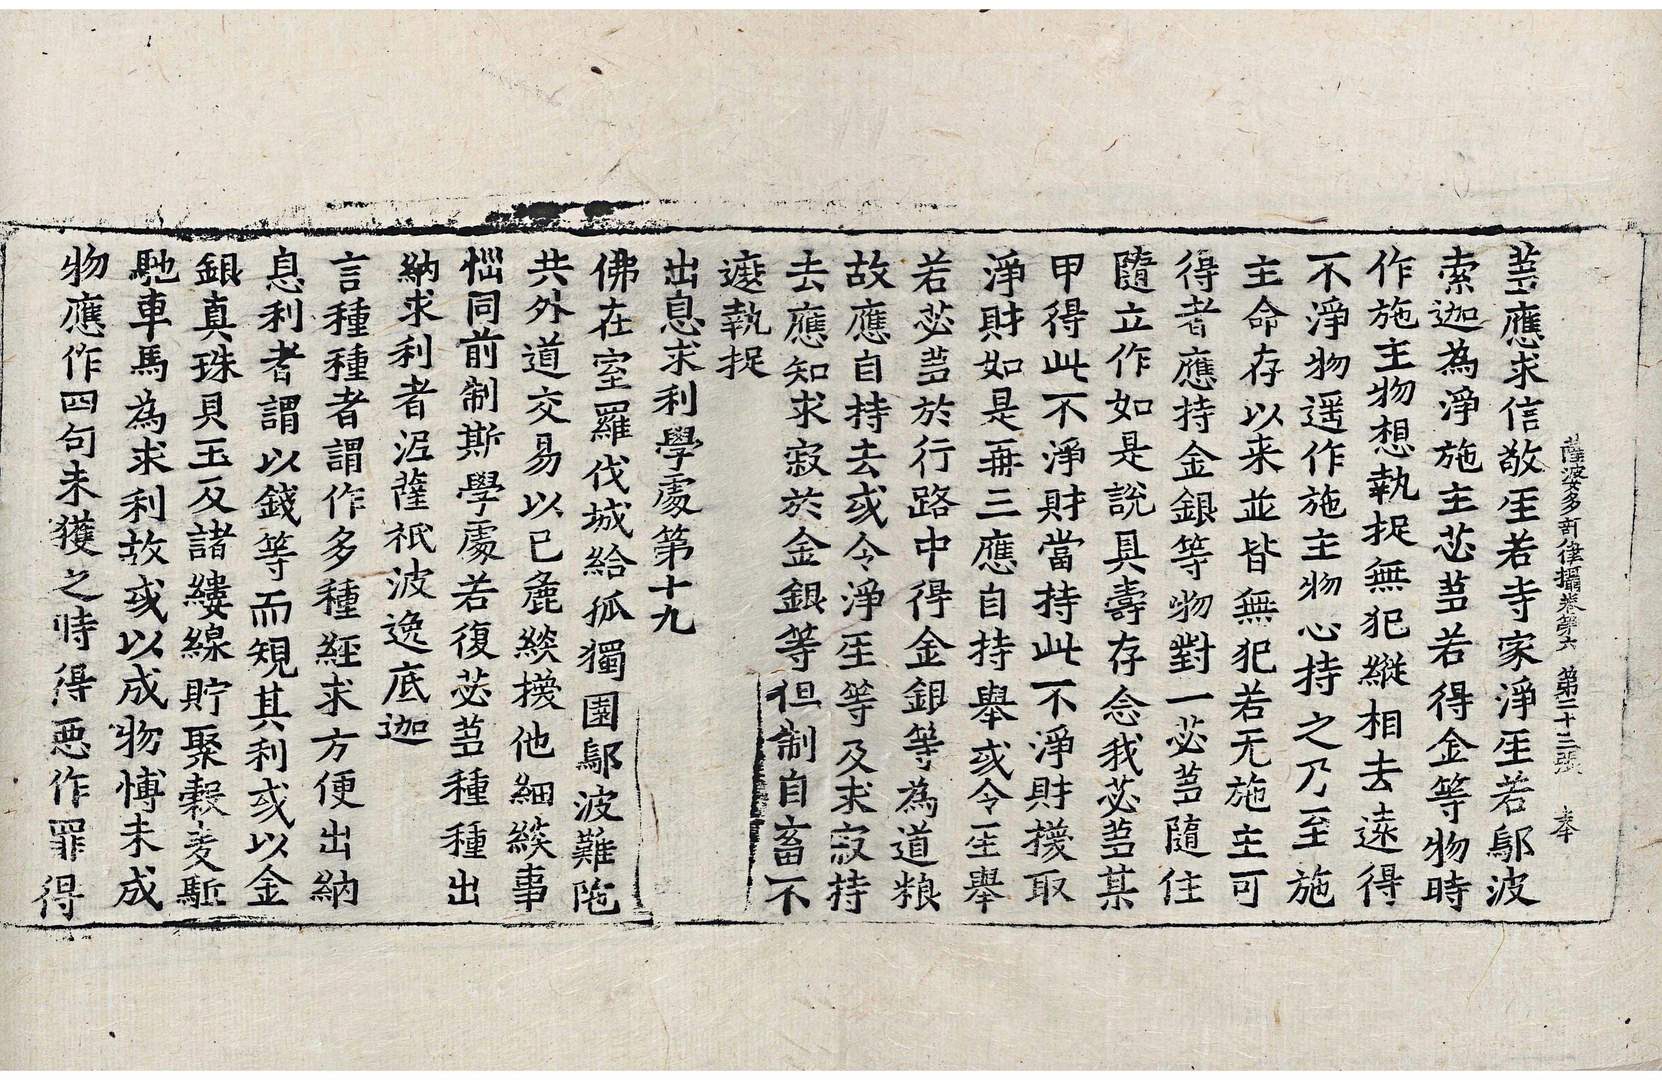 薩婆多部律攝卷第六　第二十三張　奉
蒭應求信敬𤯔若寺家淨𤯔若鄔波
索迦為淨施主苾蒭若得金等物時
作施主物想執捉無犯縱相去遠得
不淨物遥作施主物心持之乃至施
主命存以来並皆無犯若无施主可
得者應持金銀等物對一苾蒭隨住
隨立作如是說具壽存念我苾蒭某
甲得此不淨財當持此不淨財㧱取
淨財如是再三應自持舉或令𤯔舉
若苾蒭於行路中得金銀等為道粮
故應自持去或令淨𤯔等及求寂持
去應知求寂於金銀等但制自畜不
遮執捉
出息求利學處第十九
佛在室羅伐城給孤獨園鄔波難陁
共外道交易以己麁緂換他細緂事
惱同前制斯學處若復苾蒭種種出
納求利者泥薩祇波逸底迦
言種種者謂作多種經求方便出納
息利者謂以錢等而規其利或以金
銀真珠貝玉及諸縷線貯聚穀麦駈
馳車馬為求利故或以成物愽未成
物應作四句未獲之時得惡作罪得